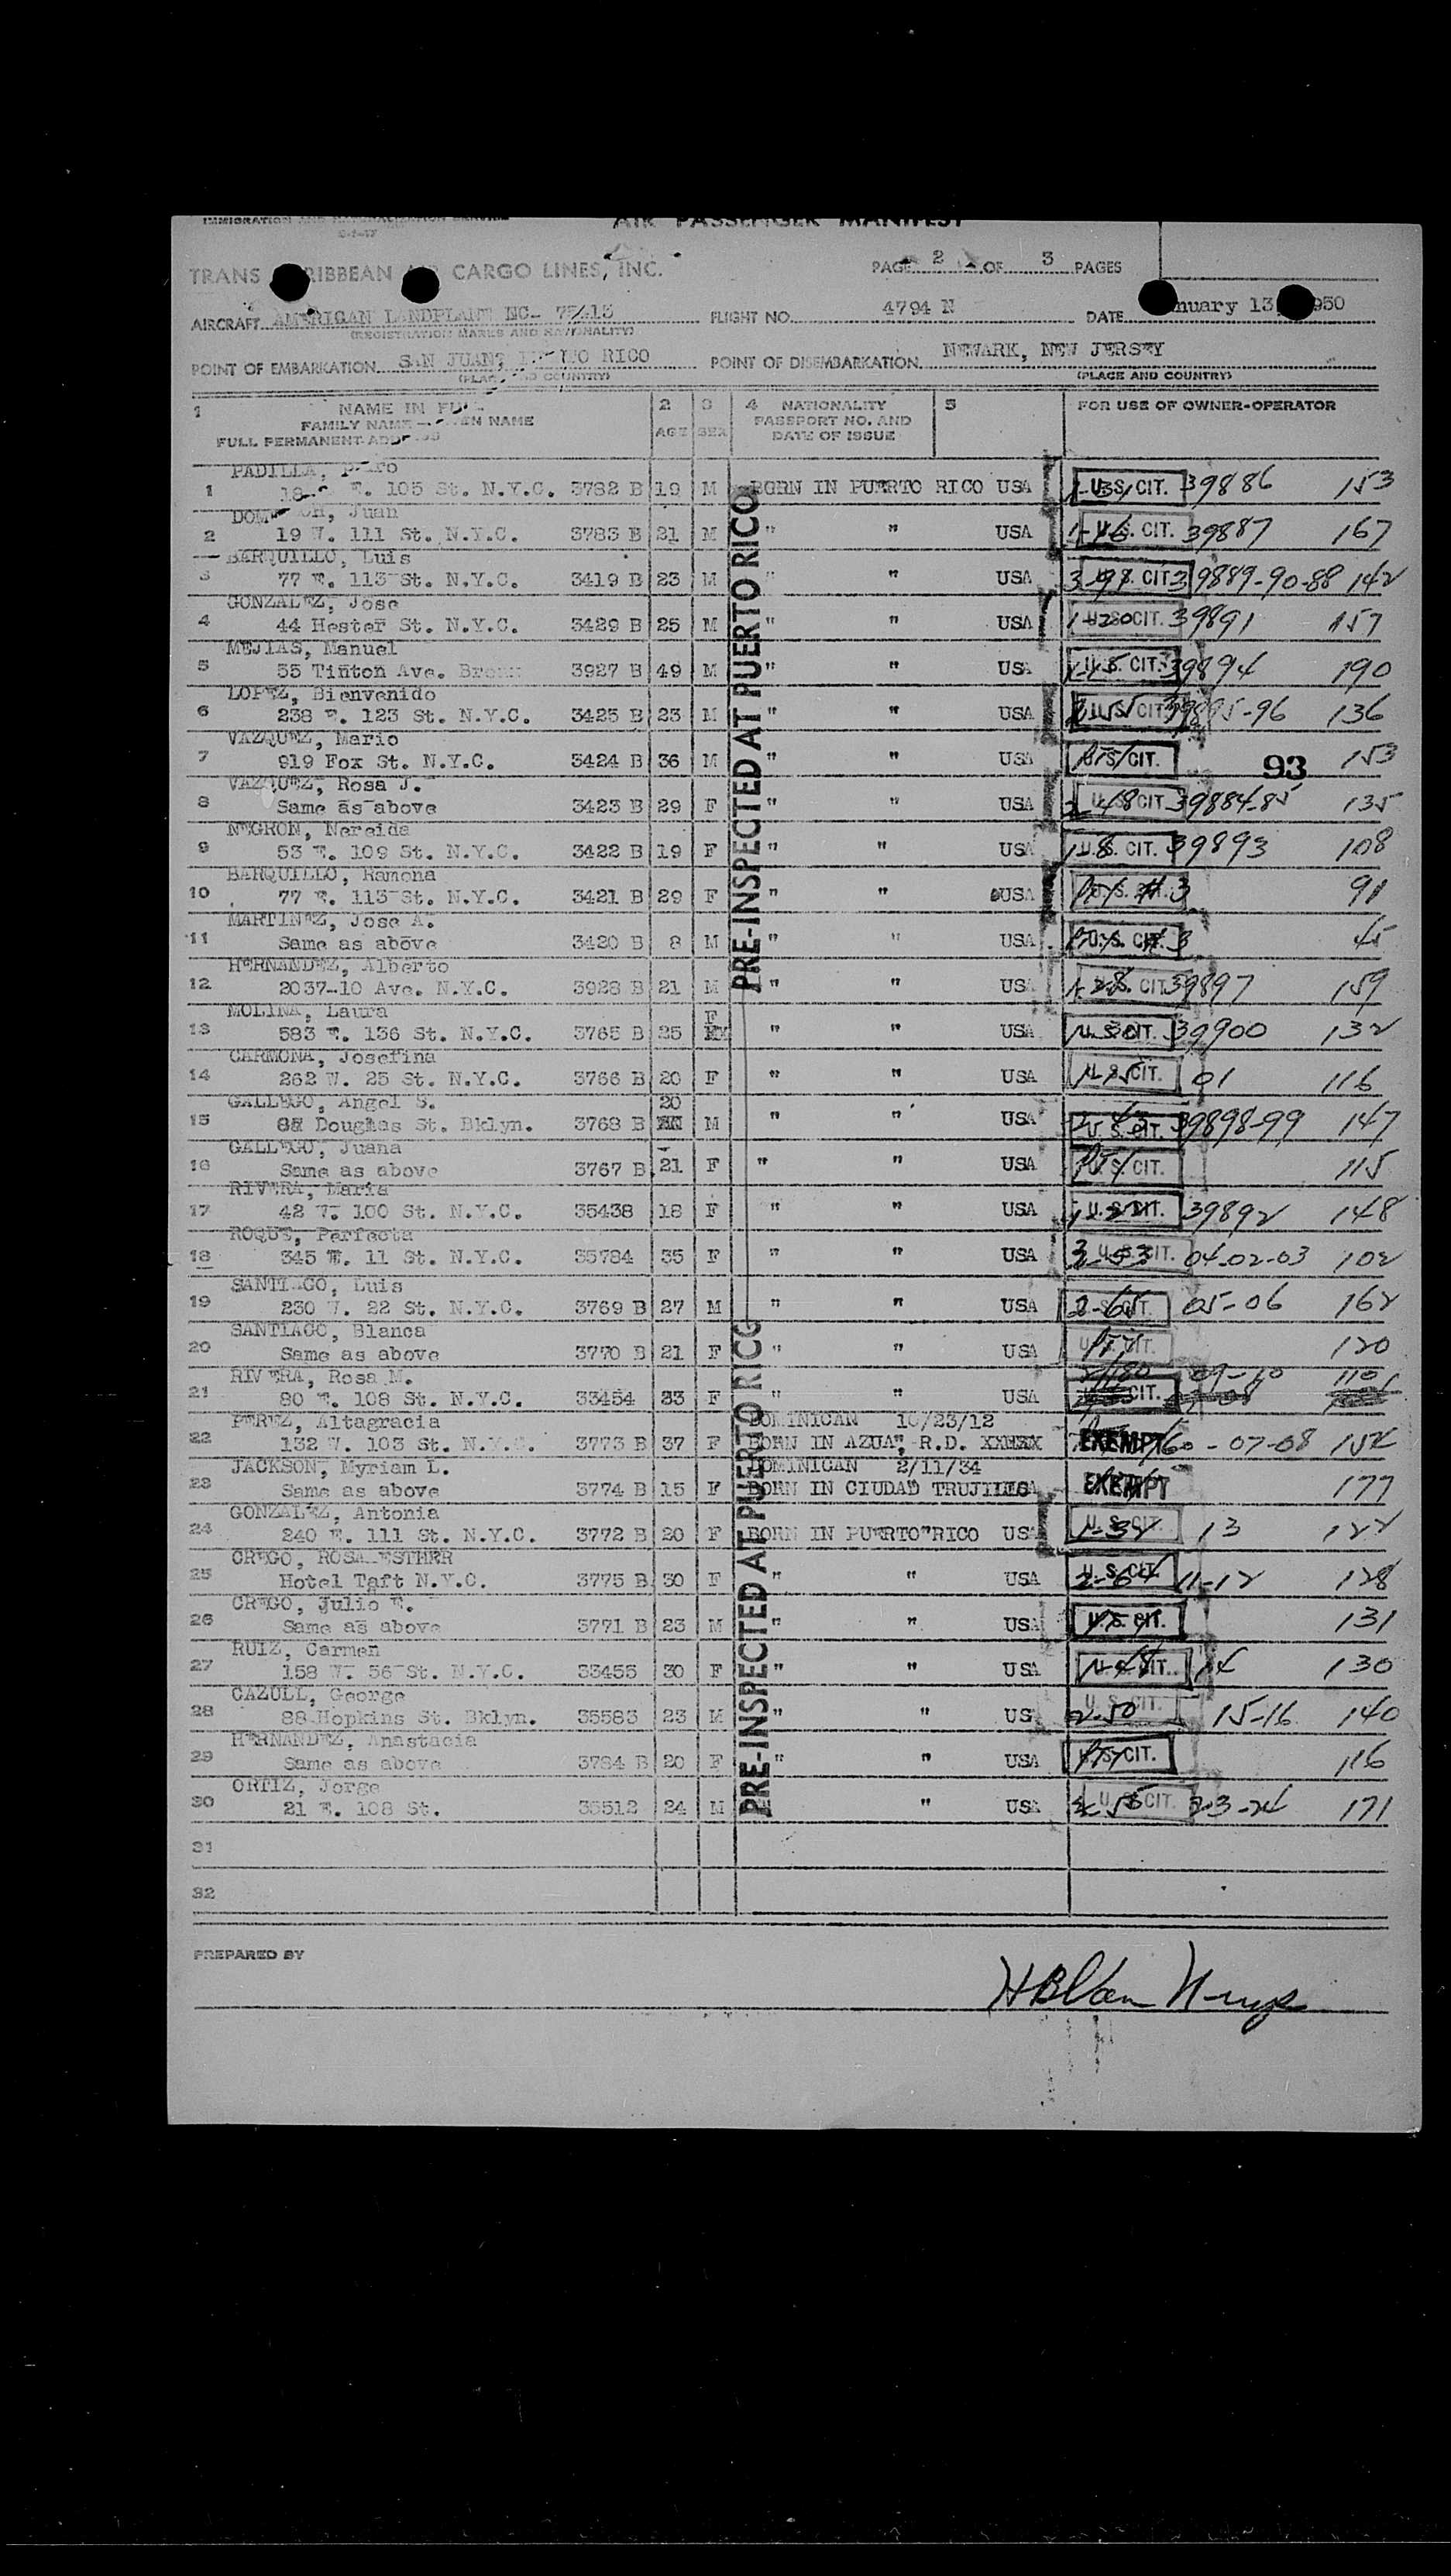 IMMIGRATION AND NATURALIZATION SERVICE
AIR PASSENGER MANIFEST
TRANS CARIBBEAN AIR CARGO LINES, INC.
PAGE 2 OF 3 PAGES
AIRCRAFT AMERICAN LANDPLANE NC- 75415 FLIGHT NO. 4794 N DATE January 13, 1950
(REGISTRATION MARKS AND NATIONALITY)
POINT OF EMBARKATION SAN JUAN, PUERTO RICO POINT OF DISEMBARKATION NEWARK, NEW JERSEY
(PLACE AND COUNTRY) (PLACE AND COUNTRY)
1 NAME IN FULL 2 3 4 NATIONALITY 5 FOR USE OF OWNER-OPERATOR
FAMILY NAME — GIVEN NAME AGE SEX PASSPORT NO. AND
FULL PERMANENT ADDRESS DATE OF ISSUE
PRE-INSPECTED AT PUERTO RICO
PADILLA, Pedro
1 E. 105 St. N.Y.C. 3782 B 19 M BORN IN PUERTO RICO USA U.S. CIT. 39886 153
Juan
2 19 W. 111 St. N.Y.C. 3783 B 21 M " " USA U.S. CIT. 39887 167
BARQUILLO, Luis
3 77 E. 113 St. N.Y.C. 3419 B 23 M " " USA 3-98 U.S. CIT. 39889-90-88 142
GONZALEZ, Jose
4 44 Hester St. N.Y.C. 3429 B 25 M " " USA U.S. CIT. 39891 157
MEJIAS, Manuel
5 55 Tinton Ave. Bronx 3927 B 49 M " " USA U.S. CIT. 39894 190
LOPEZ, Bienvenido
6 238 E. 123 St. N.Y.C. 3425 B 23 M " " USA U.S. CIT. 39895-96 136
VAZQUEZ, Mario
7 919 Fox St. N.Y.C. 3424 B 36 M " " USA U.S. CIT. 93 153
VAZQUEZ, Rosa J.
8 Same as above 3423 B 29 F " " USA 2-48 U.S. CIT. 39884-85 135
NEGRON, Nereida
9 53 E. 109 St. N.Y.C. 3422 B 19 F " " USA U.S. CIT. 39893 108
BARQUILLO, Ramona
10 77 E. 113 St. N.Y.C. 3421 B 29 F " " USA U.S. CIT. #3 91
MARTINEZ, Jose A.
11 Same as above 3420 B 8 M " " USA U.S. CIT. #3 45
HERNANDEZ, Alberto
12 2037-10 Ave. N.Y.C. 3928 B 21 M " " USA U.S. CIT. 39897 159
MOLINA, Laura F
13 583 E. 136 St. N.Y.C. 3765 B 25 " " USA U.S. CIT. 39900 132
CARMONA, Josefina
14 262 W. 25 St. N.Y.C. 3766 B 20 F " " USA U.S. CIT. 01 116
GALLEGO, Angel S. 20
15 Douglas St. Bklyn. 3768 B M " " USA U.S. CIT. 39898-99 147
GALLEGO, Juana
16 Same as above 3767 B 21 F " " USA U.S. CIT. 115
RIVERA, Maria
17 42 W. 100 St. N.Y.C. 35438 18 F " " USA U.S. CIT. 39892 148
ROQUE, Perfecta
18 345 E. 11 St. N.Y.C. 35784 35 F " " USA U.S. CIT. 04-02-03 102
SANTIAGO, Luis
19 230 W. 22 St. N.Y.C. 3769 B 27 M " " USA 2-65 U.S. CIT. 05-06 162
SANTIAGO, Blanca
20 Same as above 3770 B 21 F " " USA U.S. CIT. 120
RIVERA, Rosa M. 09-10 110
21 80 E. 108 St. N.Y.C. 33454 33 F " " USA U.S. CIT.
PEREZ, Altagracia DOMINICAN 10/23/12
22 132 W. 103 St. N.Y.C. 3773 B 37 F BORN IN AZUA, R.D. EXEMPT 07-08 152
JACKSON, Myriam L. DOMINICAN 2/11/34
23 Same as above 3774 B 15 F BORN IN CIUDAD TRUJILLO EXEMPT 177
GONZALEZ, Antonia
24 240 E. 111 St. N.Y.C. 3772 B 20 F BORN IN PUERTO RICO USA 1-32 U.S. CIT. 13 122
CREGO, ROSA ESTHER
25 Hotel Taft N.Y.C. 3775 B 30 F " " USA 2-64 U.S. CIT. 11-12 128
CREGO, Julio E.
26 Same as above 3771 B 23 M " " USA U.S. CIT. 131
RUIZ, Carmen
27 158 W. 56 St. N.Y.C. 33453 30 F " " USA U.S. CIT. 14 130
CAZULL, George
28 88 Hopkins St. Bklyn. 35583 23 M " " US 2-50 U.S. CIT. 15-16 140
HERNANDEZ, Anastacia
29 Same as above 3784 B 20 F " " USA U.S. CIT. 116
ORTIZ, Jorge
30 21 E. 108 St. 35512 24 M " USA U.S. CIT. 23-24 171
PRE-INSPECTED AT PUERTO RICO
31
32
PREPARED BY